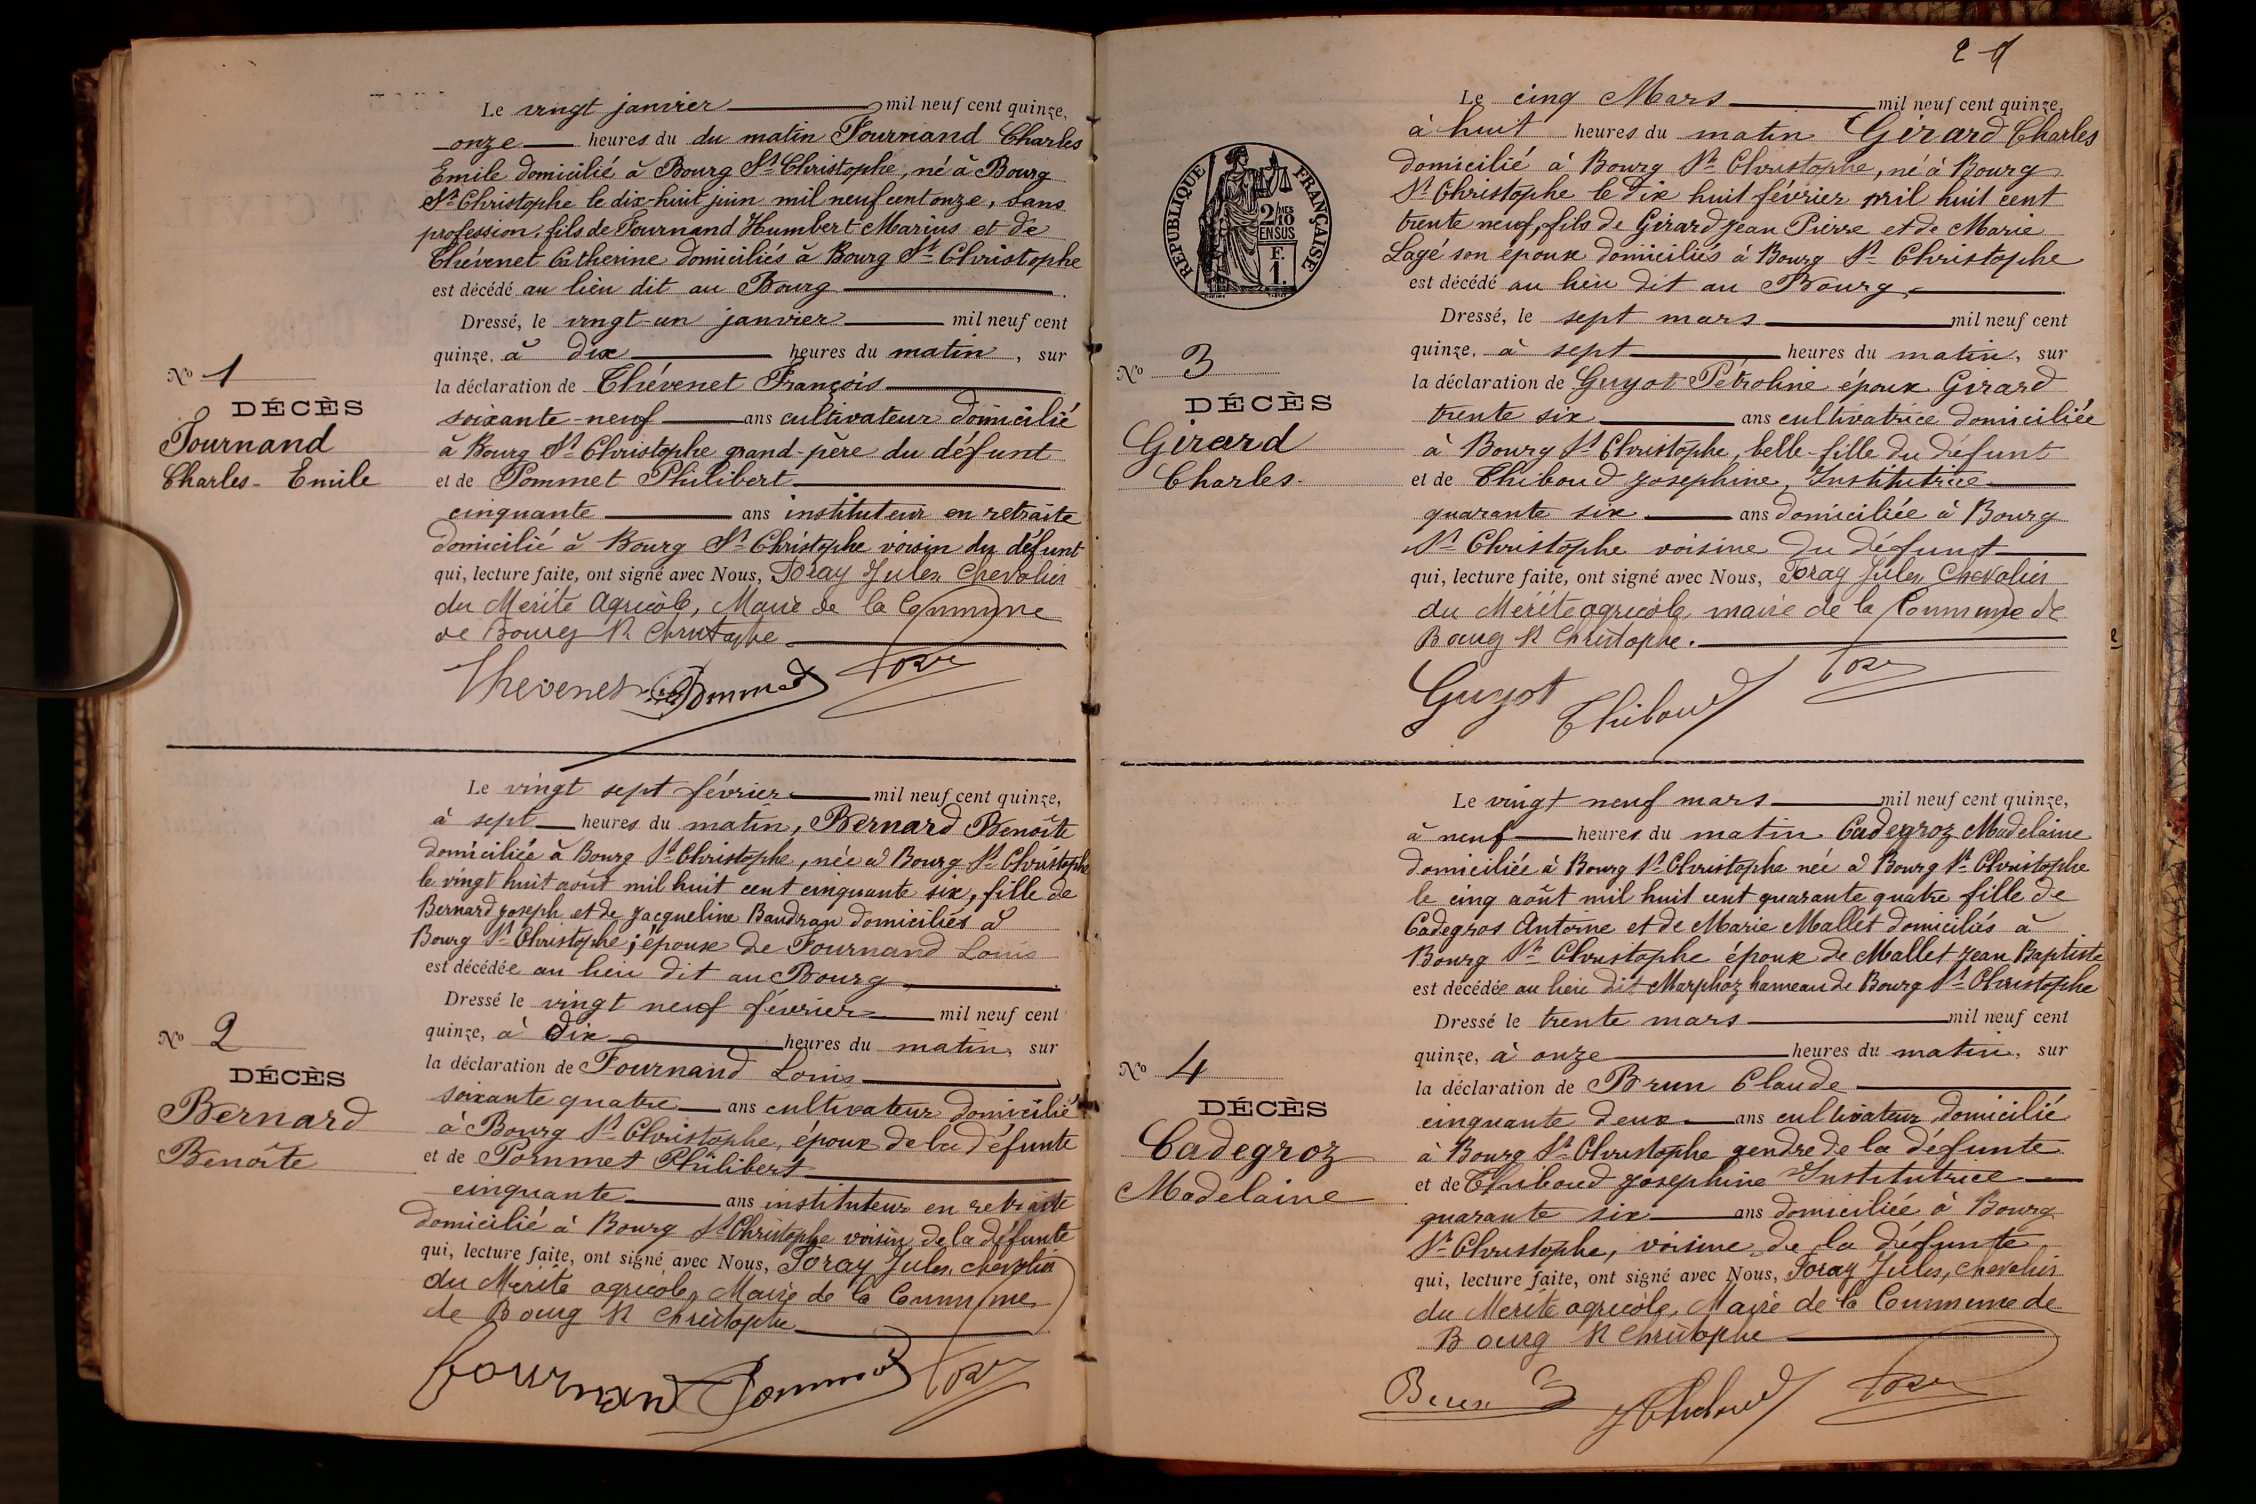 Le vingt janvier mil neuf cent quinze,
onze heures du du matin Fournand Charles
Emile domicilié à Bourg St Christophe, né à Bourg
St Christophe le dix-huit juin mil neuf cent onze, sans
profession, fils de Fournand Humbert Marius et de
Thévenet Catherine domiciliés à Bourg St Christophe
est décédé au lieu dit au Bourg
Dressé, le vingt-un janvier mil neuf cent
quinze, à dix heures du matin, sur
la déclaration de Thévenet François
soixante-neuf ans cultivateur domicilié
à Bourg St Christophe grand-père du défunt
et de Pommet Philibert
cinquante ans instituteur en retraite
domicilié à Bourg St Christophe voisin du défunt
qui, lecture faite, ont signé avec Nous, Toray Jules Chevalier
du Mérite Agricole, Maire de la Commune
de Bourg St Christophe
Thevenet Pommet Toray
No 1
DÉCÈS
Fournand
Charles-Emile
Le vingt sept février mil neuf cent quinze,
à sept heures du matin, Bernard Benoîte
domiciliée à Bourg St Christophe, née à Bourg St Christophe
le vingt huit août mil huit cent cinquante six, fille de
Bernard Joseph et de Jacqueline Baudran domiciliés à
Bourg St Christophe ; épouse de Fournand Louis
est décédée au lieu dit au Bourg
Dressé le vingt neuf février mil neuf cent
quinze, à dix heures du matin, sur
la déclaration de Fournand Louis
soixante quatre ans cultivateur domicilié
à Bourg St Christophe, époux de la défunte
et de Pommet Philibert
cinquante ans instituteur en retraite
domicilié à Bourg St Christophe voisin de la défunte
qui, lecture faite, ont signé avec Nous, Toray Jules, chevalier
du Mérite agricole, Maire de la Commune
de Bourg St Christophe
Fournand Pommet Toray
No 2
DÉCÈS
Bernard
Benoîte
2
RÉPUBLIQUE FRANÇAISE
2/10 MES
EN SUS
F.
1.
Le cinq Mars mil neuf cent quinze,
à huit heures du matin Girard Charles
domicilié à Bourg St Christophe, né à Bourg
St Christophe le dix huit février mil huit cent
trente neuf, fils de Girard Jean Pierre et de Marie
Lagé son époux domiciliés à Bourg St Christophe
est décédé au lieu dit au Bourg,
Dressé, le sept mars mil neuf cent
quinze, à sept heures du matin, sur
la déclaration de Guyot Pétroline époux Girard
trente six ans cultivatrice domiciliée
à Bourg St Christophe, belle-fille du défunt
et de Thiboud Josephine, Institutrice
quarante six ans domiciliée à Bourg
St Christophe voisine du défunt
qui, lecture faite, ont signé avec Nous, Toray Jules, Chevalier
du Mérite agricole, maire de la Commune de
Bourg St Christophe.
Guyot Thiboud Toray
No 3
DÉCÈS
Girard
Charles
Le vingt neuf mars mil neuf cent quinze,
à neuf heures du matin Cadegroz Madelaine
domiciliée à Bourg St Christophe née à Bourg St Christophe
le cinq août mil huit cent quarante quatre fille de
Cadegros Antoine et de Marie Mallet domiciliés à
Bourg St Christophe époux de Mallet Jean Baptiste
est décédée au lieu dit Marphoz hameau de Bourg St Christophe
Dressé le trente mars mil neuf cent
quinze, à onze heures du matin, sur
la déclaration de Brun Claude
cinquante deux ans cultivateur domicilié
à Bourg St Christophe gendre de la défunte
et de Thiboud Josephine Institutrice
quarante six ans domiciliée à Bourg
St Christophe, voisine de la défunte
qui, lecture faite, ont signé avec Nous, Toray Jules, chevalier
du Mérite agricole, Maire de la Commune de
Bourg St Christophe
Brun J Thiboud Toray
No 4
DÉCÈS
Cadegroz
Madelaine